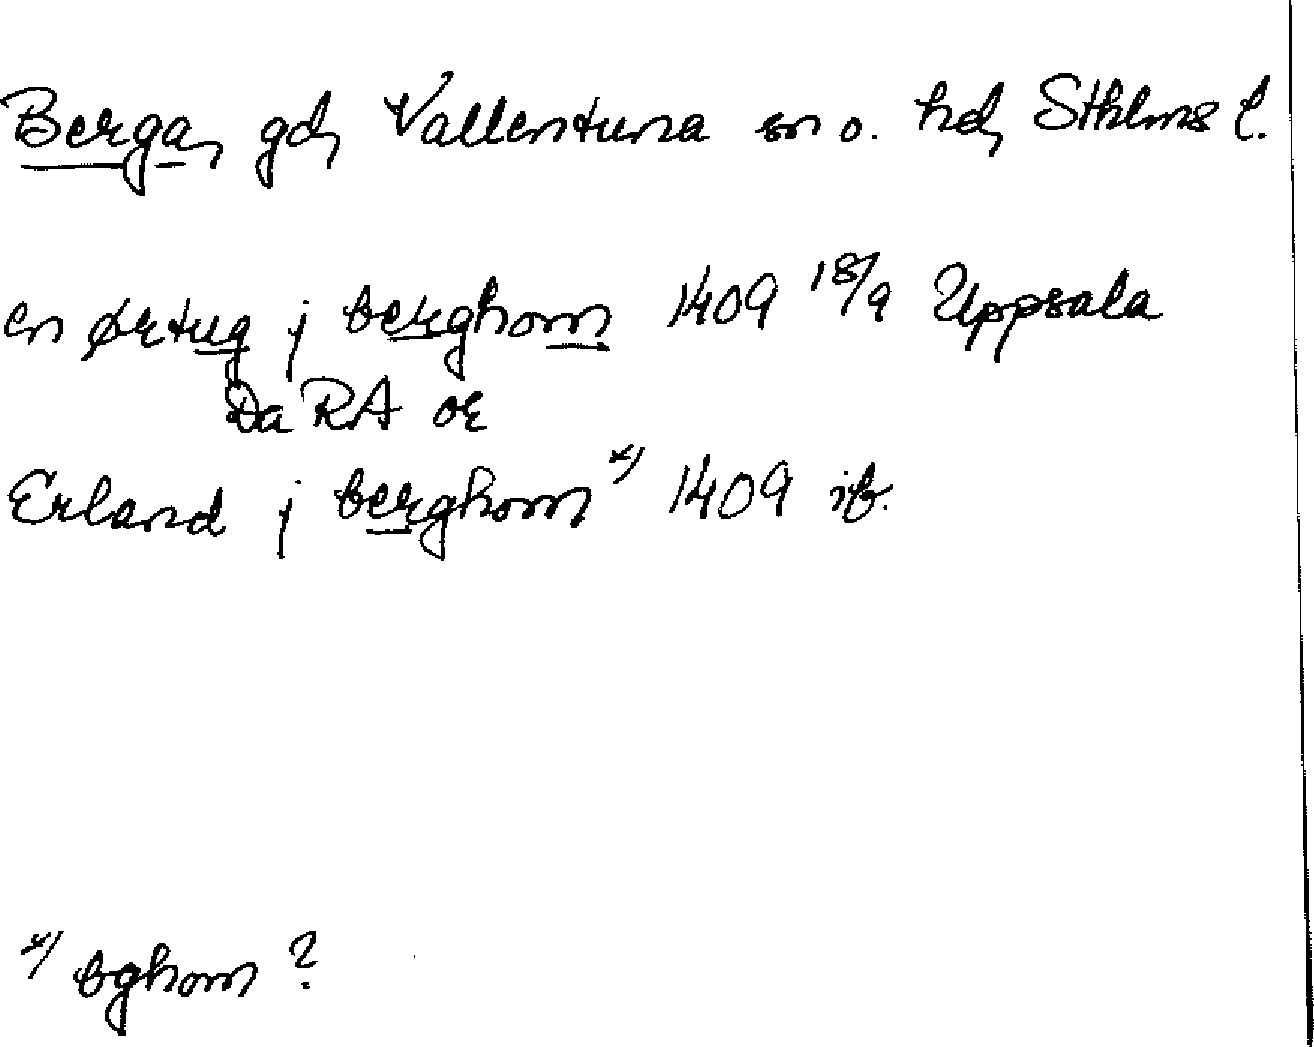 Berga, gd, Vallentuna sn o. hd, Sthlms l.
en ørtug j berghom 1409 18/9 Uppsala
Da RA or
Erland j berghom x) 1409 ib.
x) bghom ?